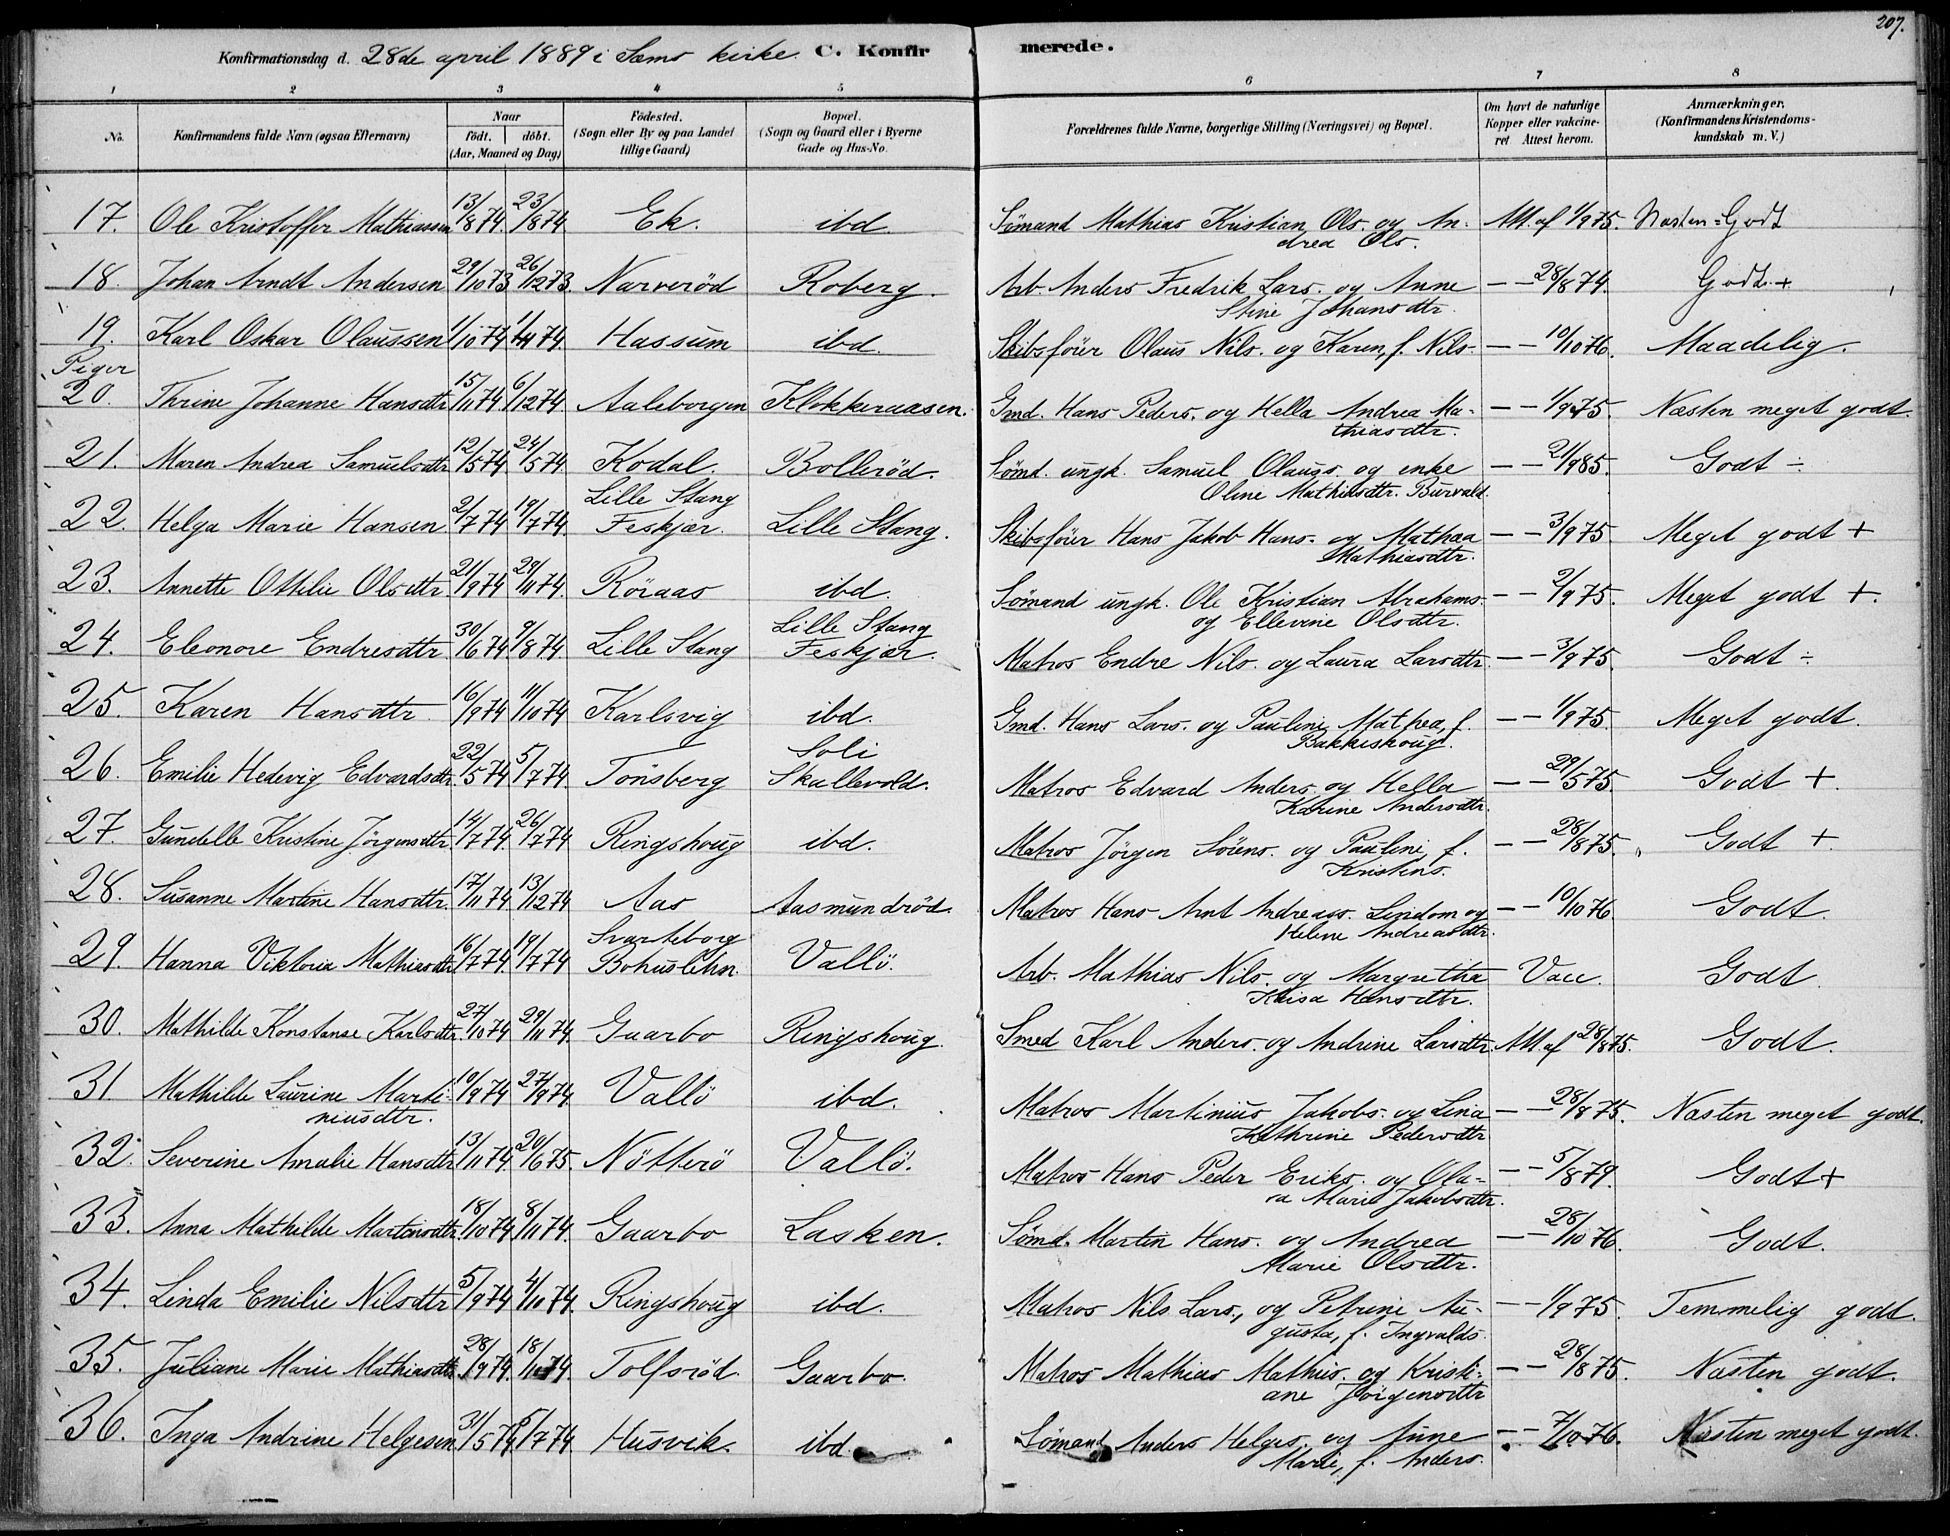 207.
Konfirmationsdag d. 28de april 1889 i Sems kirke. C. Konfirmerede.
1 2 3 4 5 6 7 8
No. Konfirmandens fulde Navn (ogsaa Efternavn) Naar födt. döbt. (Aar, Maaned og Dag) Födested. (Sogn eller By og paa Landet tillige Gaard) Bopæl. (Sogn og Gaard eller i Byerne Gade og Hus-No. Forældrenes fulde Navne, borgerlige Stilling (Næringsvei) og Bopæl. Om havt de naturlige Kopper eller vakcineret Attest herom. Anmærkninger. (Konfirmandens Kristendomskundskab m. V.)
17. Ole Kristoffer Mathiassen 13/8 74. 23/8 74 Ek. ibd. Sömand Mathias Kristian Ols. og An- Att. af 1/9 75. Næsten Godt
drea Ols.
18. Johan Arndt Andersen 29/10 73 26/12 73. Narverød Roberg. Arb. Anders Fredrik Lars. og Anne — — 28/8 74. Godt +
Stine Johansdtr.
19. Karl Oskar Olaussen 1/10 74 1/11 74. Hassum ibd. Skibsföier Olaus Nils. og Karen, f. Nils. — — 10/10 76. Maadelig.
Piger
20. Thrine Johanne Hansdtr 15/11 74. 6/12 74 Aaleborgen Klokkeraasen. Gmd. Hans Peders. og Hella Andrea Ma- — — 1/9 75. Næsten meget godt.
thiasdtr.
21. Maren Andrea Samuelsdtr 12/5 74 24/5 74. Kodal. Bollerød. Sömd. ungk. Samuel Olauss. og enke — — 21/9 85. Godt ÷
Oline Mathiasdtr. Burvald.
22. Helga Marie Hansen 2/7 74 19/7 74. Lille Stang Feskjær. Lille Stang. Skibsföier Hans Jakob Hans. og Mathea — — 3/9 75. Meget godt +
Mathiasdtr.
23. Annette Ottilie Olsdtr. 21/9 74 29/11 74. Röraas ibd. Sömand ungk. Ole Kristian Abrahams. — — 2/9 75. Meget godt +.
og Ellevine Olsdtr.
24. Eleonore Endresdtr. 30/6 74 9/8 74. Lille Stang Lille Stang Feskjær. Matros Endre Nils. og Laura Larsdtr. — — 3/9 75. Godt ÷
25. Karen Hansdtr. 16/9 74 11/10 74 Karlsvig ibd. Gmd. Hans Lars. og Pauline Mathea, f. — — 1/9 75. Meget godt.
Bakkeshoug.
26. Emilie Hedevig Edvardsdtr. 22/5 74 5/7 74. Tönsberg Soli Skallevold. Matros Edvard Anders. og Hella — — 29/5 75. Godt +.
Karine Andersdtr.
27. Gunelle Kristine Jörgensdtr. 14/7 74. 26/7 74 Ringshoug ibd. Matros Jörgen Sörens. og Pauline, f. — — 28/8 75. Godt +.
Kristens.
28. Susanne Martine Hansdtr. 17/11 74 13/12 74 Aas Aasmundröd. Matros Hans Arnt Andreass. Lindom og — — 10/10 76. Godt.
Helene Andreasdtr.
29. Hanna Viktoria Mathiasdtr 16/7 74. 19/7 74 Svarteborg Bohuslehn. Vallö. Arb. Mathias Nils. og Margretha Vacc. Godt.
Kaisa Hansdtr.
30. Mathilde Konstanse Karlsdtr. 27/10 74 29/11 74. Gaarbo Ringshoug. Smed Karl Anders. og Andrine Larsdtr. Att. af 28/8 75. Godt.
31 Mathilde Laurine Marti- 10/9 74 27/9 74 Vallö ibd. Matros Martinius Jakobs. og Lina — — 28/8 75. Næsten meget godt.
niusdtr. Kathrine Pedersdtr
32. Severine Amalie Hansdtr 13/11 74 20/6 75. Nötterö Vallö. Matros Hans Peder Eriks. og Ola- — — 5/8 79. Godt +
ra Marie Jakobsdtr.
33. Anna Mathilde Martinsdtr. 18/10 74 8/11 74. Gaarbo Lasken. Sömd. Martin Hans. og Andrea — — 28/10 76. Godt.
Marie Olsdtr.
34. Linda Emilie Nilsdtr 5/9 74 4/10 74. Ringshoug ibd. Matros Nils Lars., og Petrine Au- — — 1/9 75. Temmelig godt.
gusta, f. Ingvalds.
35. Juliane Marie Mathiasdtr. 28/9 74. 18/10 74. Tolfsröd. Gaarbo. Matros Mathias Mathis. og Kristi- — — 28/8 75. Næsten godt.
ane Jörgensdtr
36. Inga Andrine Helgesen 31/5 74 5/7 74 Husvik. ibd. Sömand Anders Helges. og Anne — — 7/10 76. Næsten meget godt.
Marie, f. Anders.